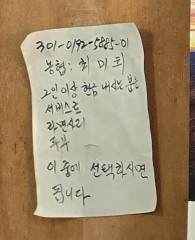 301-0192-5885-01
농협: 최미희
2인 이상 현금 내시는 분은
서비스로
라면사리
두부
이 중에 선택하시면
됩니다